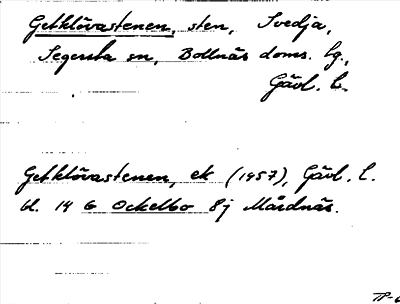 Getklövastenen, sten, Svedja,
Segersta sn, Bollnäs doms. lg.,
Gävl. l.
Getklövastenen, ek (1957), Gävl. l.
bl. 14 G Ockelbo 8j Mårdnäs.